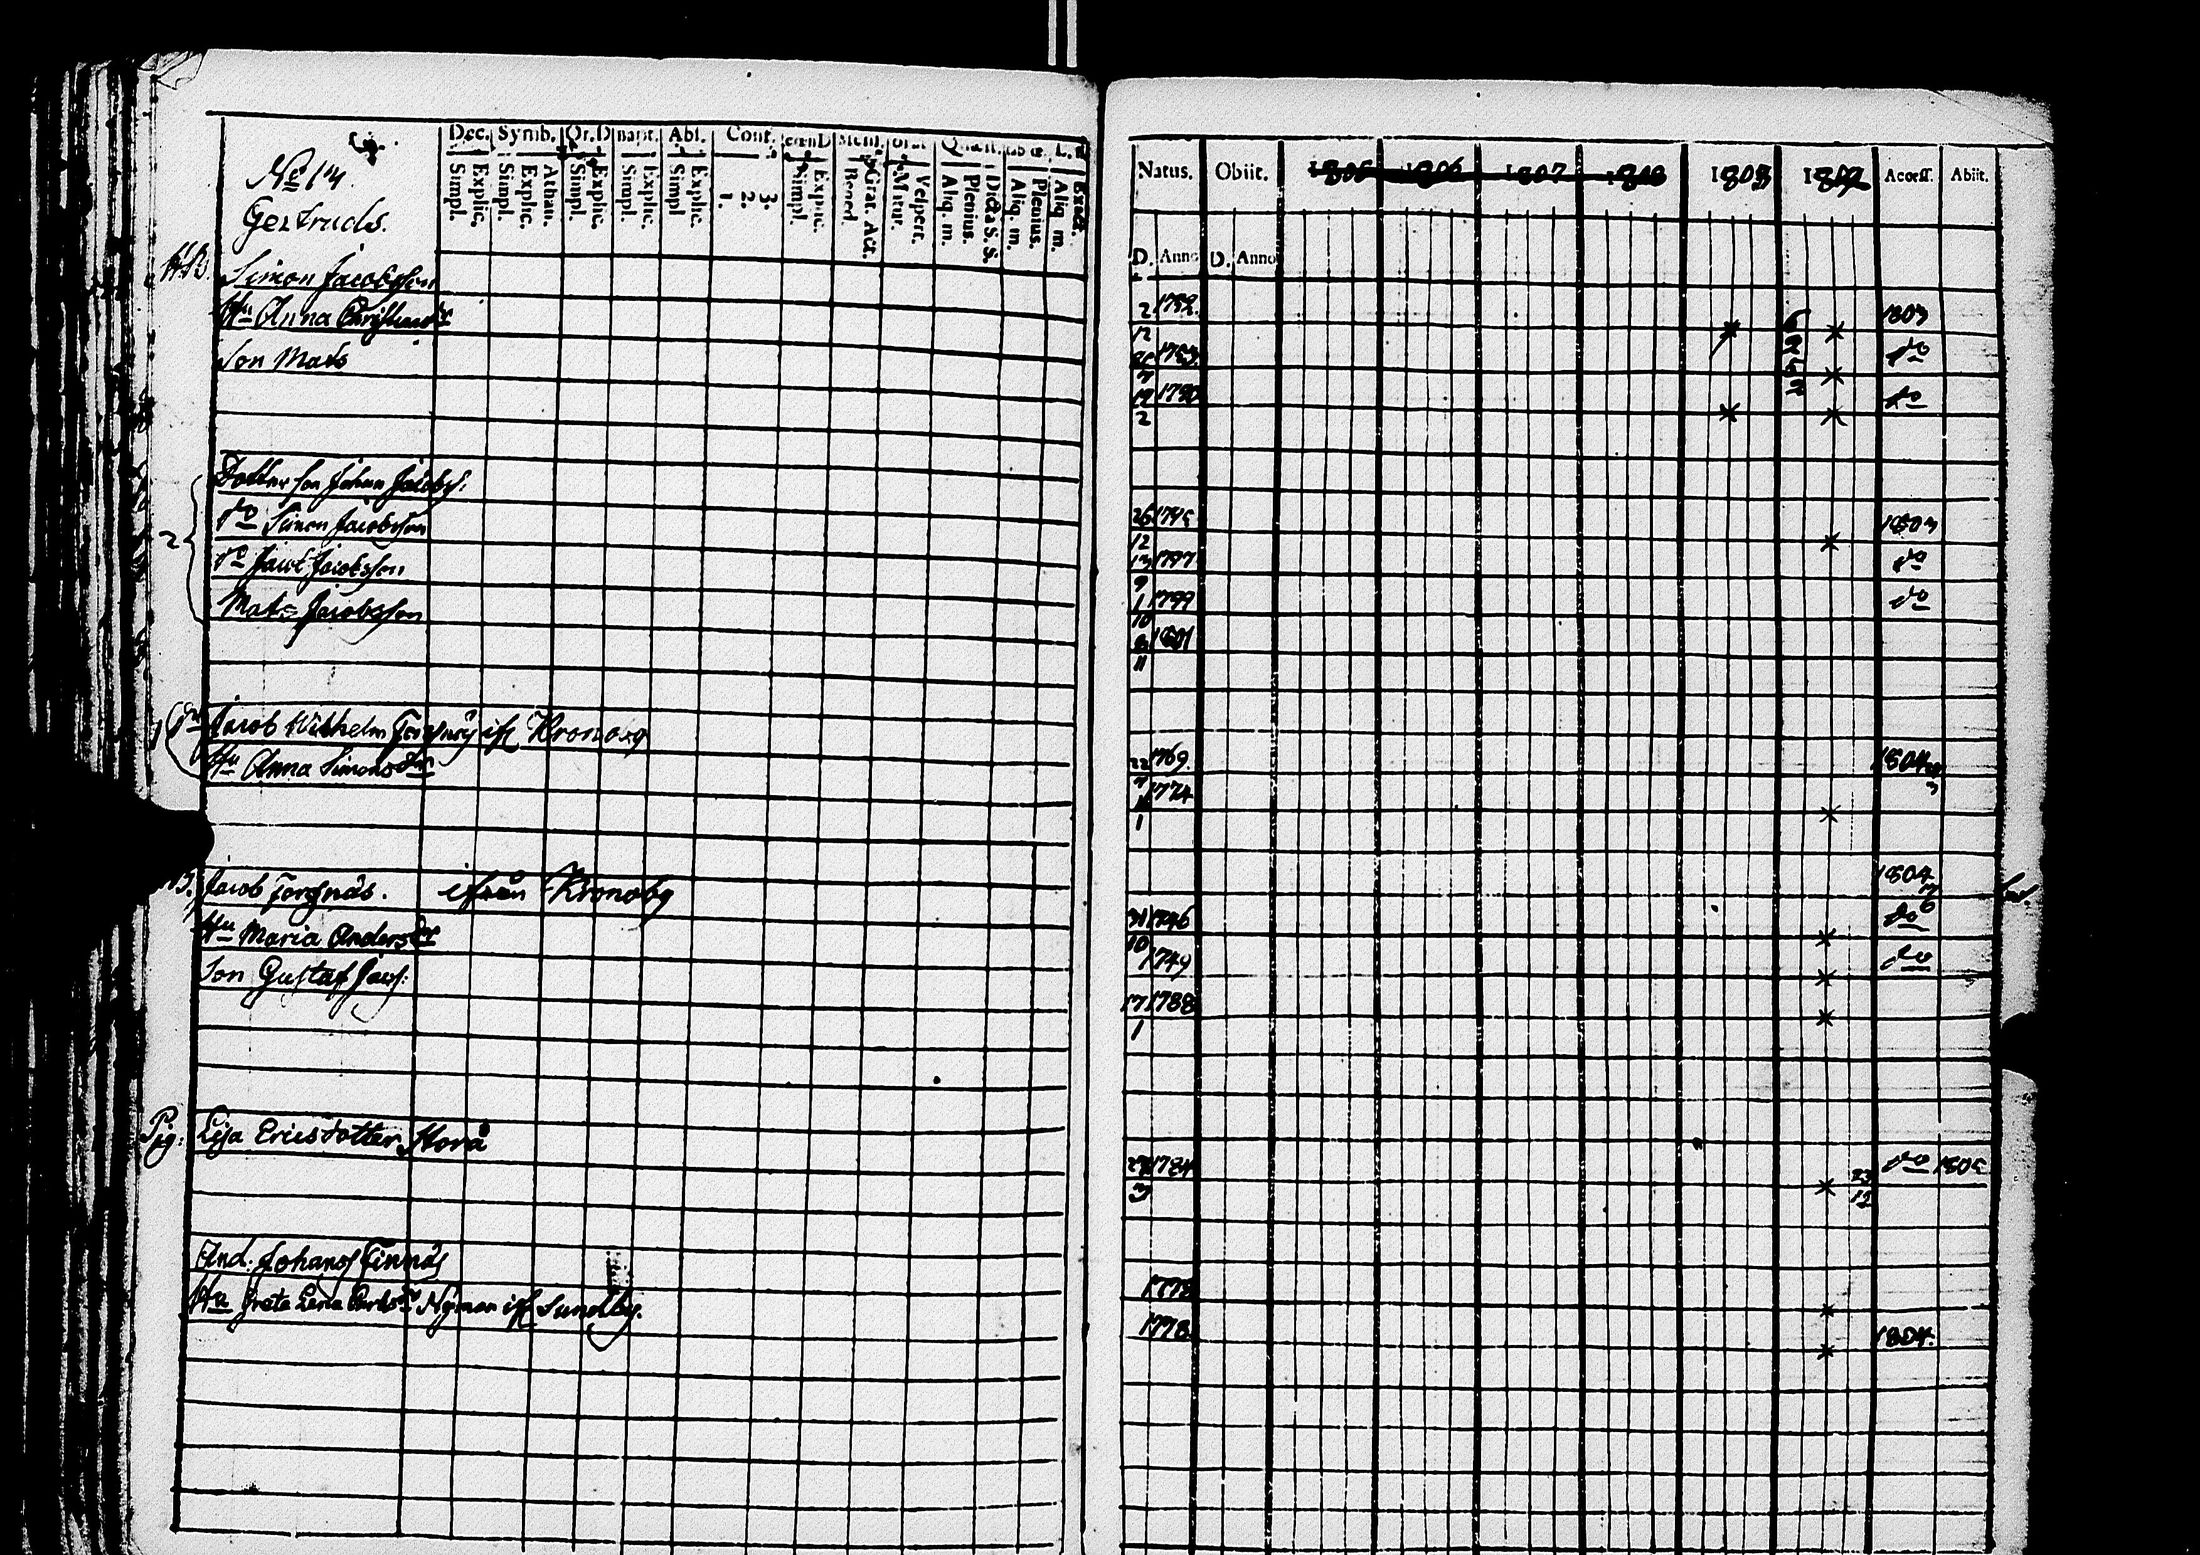 Dec. Symb. Or. D Bapt. Abs. Conf. Mens. Orat.
Simpl. Explic. Simpl. Explic. Athan. Simpl. Explic. Simpl. Explic. Simpl. Explic. 1. 2. 3. Simpl. Explic. Bened. Grat. Act. Matut. Vespert. Aliq. m. Plenius. Dicta S. S. Aliq. m. Plenius. Aliq m. Exact.
Natus. Obiit. 1805 1806 1807 1808 1803 1804 Access. Abiit.
D. Anno D. Anno
No 14
Gertruds.
HB. Simon Jacobsson 2 12 1803
Hu Anna do
Son Mats 12 2 1790 do
2
Dotter son Johan Jacobs: 26 12 1795 1803
do Simon Jacobsson 13 9 1797 do
do Jacob Jacobsson 1 10 1799 do
Mats Jacobsson 8 11 1801
Jacob Wilhelm ifr Kronoby 22 7 1769 1804
Hu Anna Simonsdr 1 1774
Jacob Forsnäs. ifrån Kronoby 31 10 1746 1804 17 6 do
Hu Maria Andersdr 1749 do
Son Gustaf Jacs: 17 1 1788
Pig: Lisa Ericsdotter Horå 3 1784 23 12 do 1805
And: Johans Finnäs 1778
Hu Greta Lena Nyman ifr Sundby. 1778 1804.